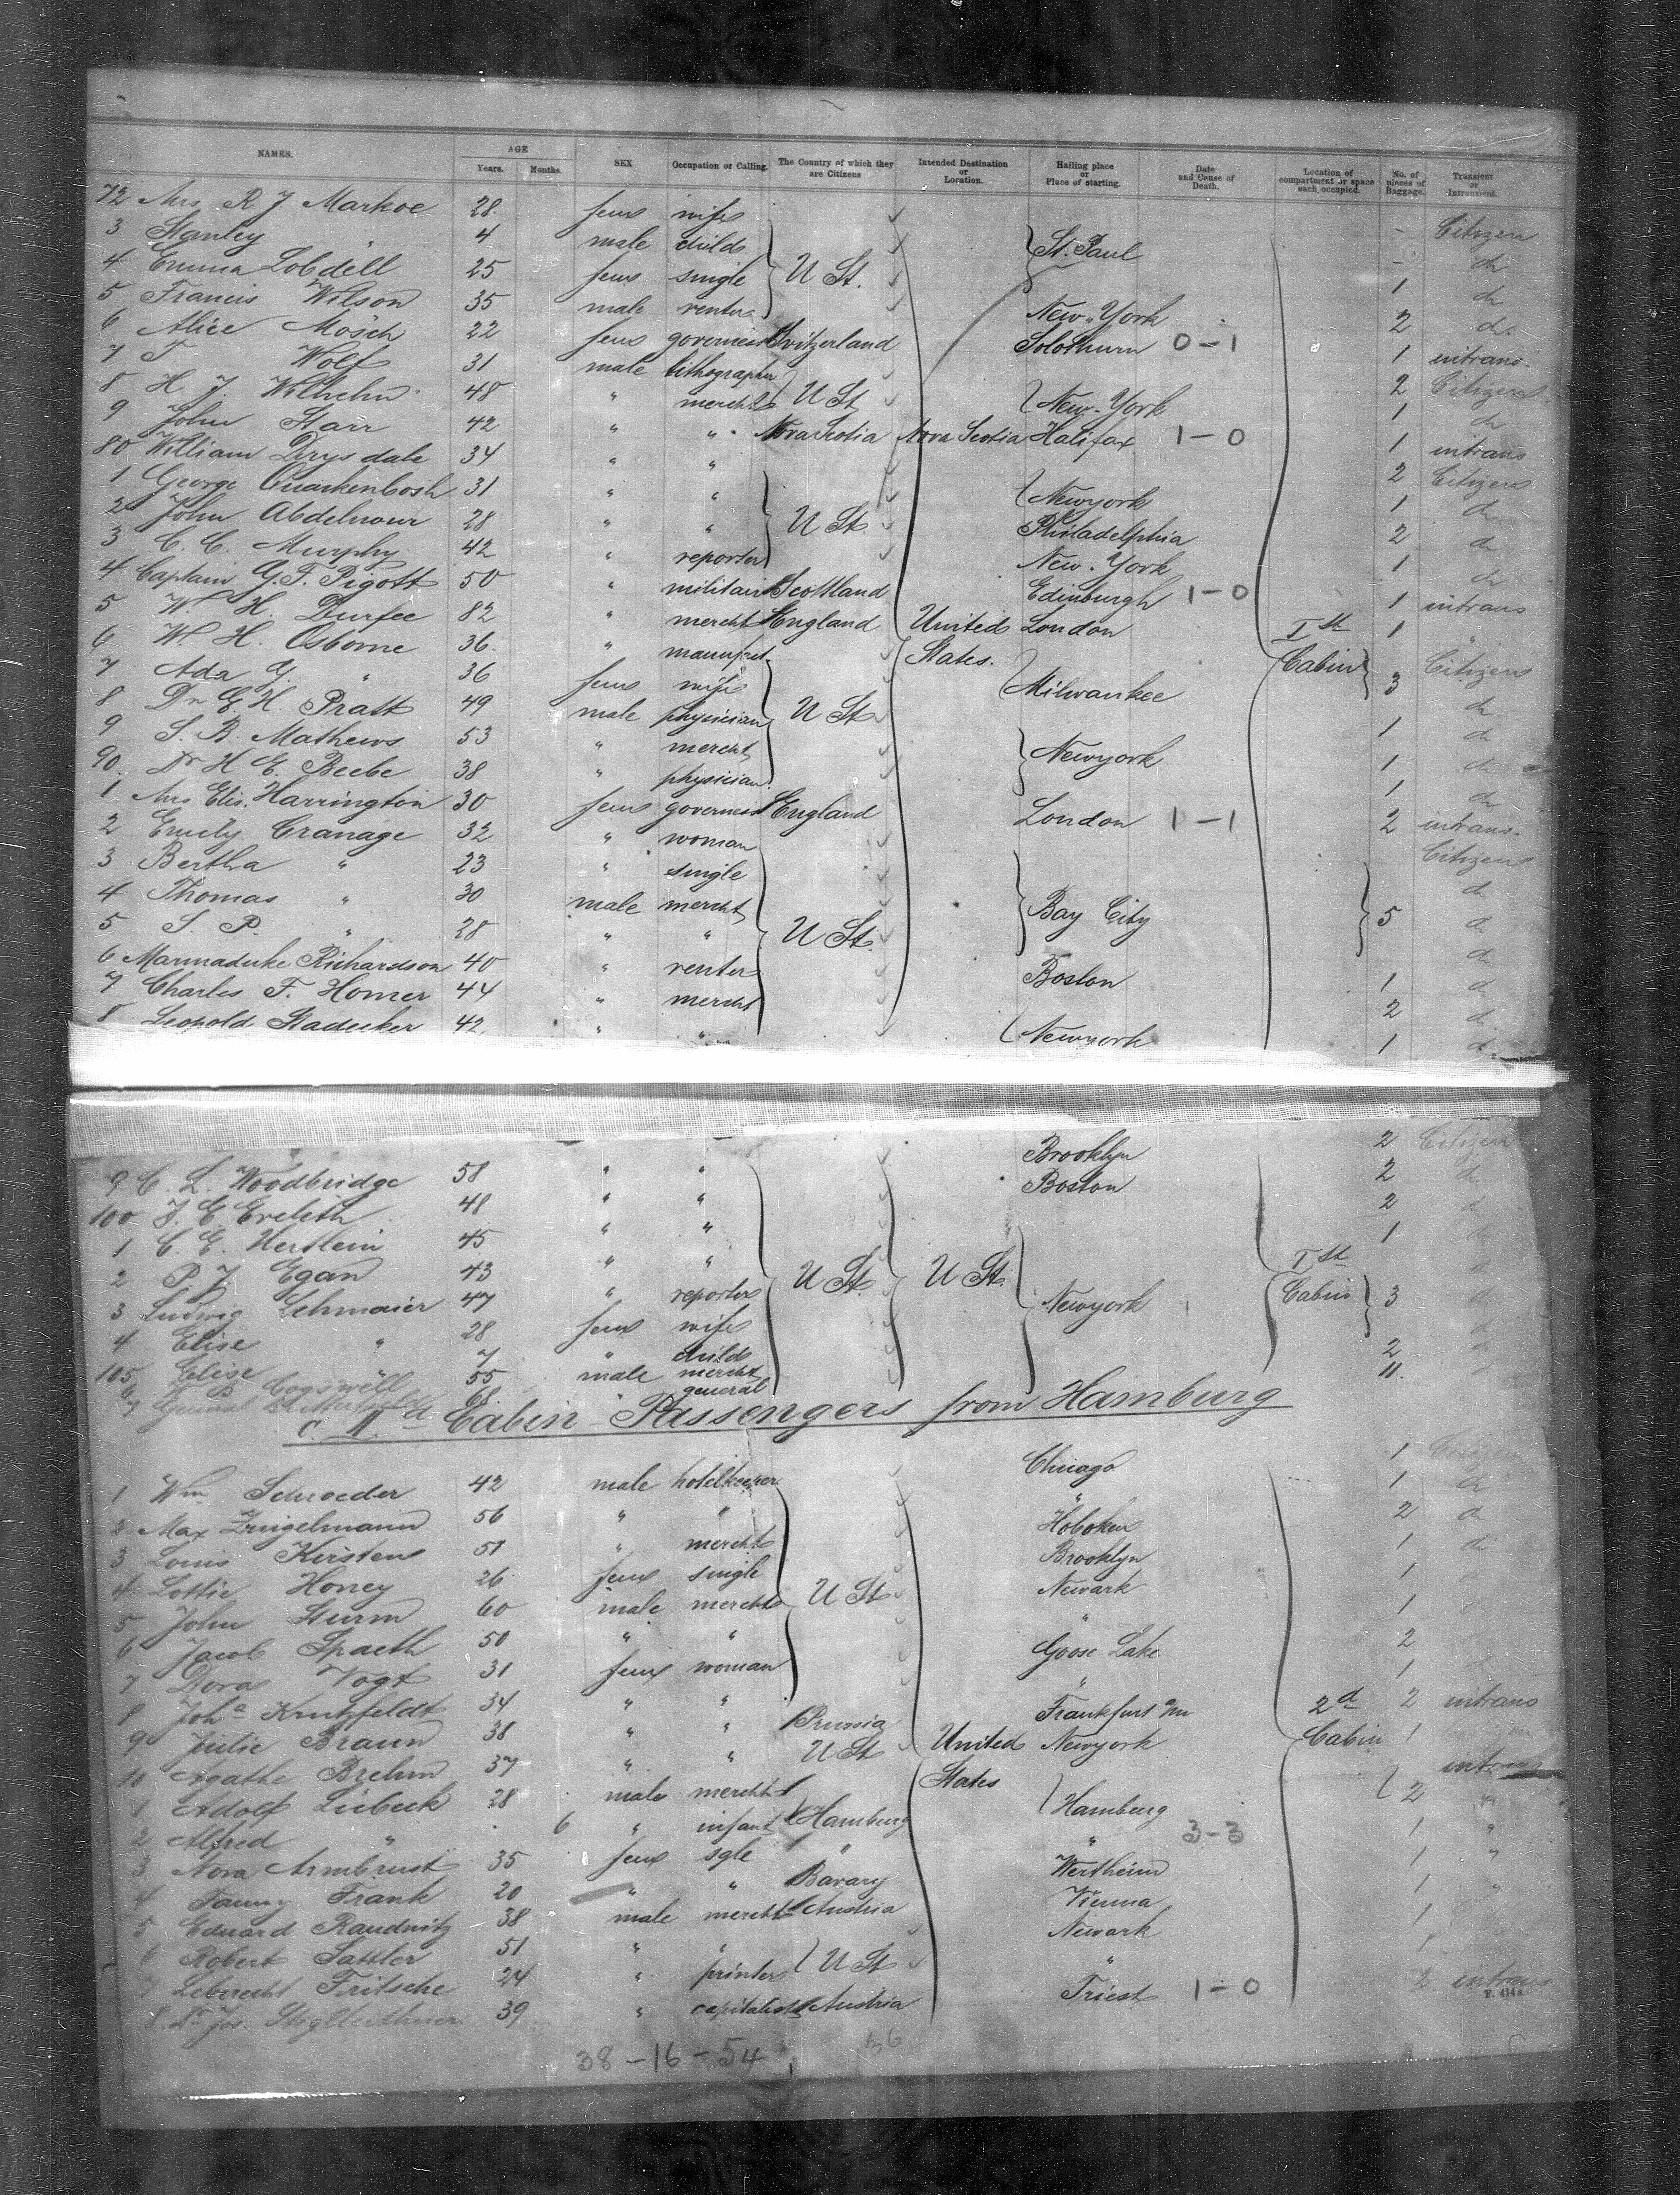 NAMES. AGE Years. Months. SEX Occupation or Calling. The Country of which they are Citizens Intended Destination or Location. Hailing place or Place of starting. Date and Cause of Death. Location of compartment or space each occupied. No. of pieces of Baggage. Transient or Intransient.
72 Mrs R J Markoe 28 fem wife - Citizen
3 Stanley " 4 male child St. Paul - do
4 Emma Lobdell 25 fem single U St. 1 do
5 Francis Wilson 35 male renter New-York 2 do
6 Alice Mösch 22 fem governess Switzerland Solothurn 0-1 1 intrans.
7 T Wolf 31 male lithographer 2 Citizen
8 H J. Wilhelm 48 " mercht U St New-York 1 do
9 John Starr 42 " " Nova Scotia Nova Scotia Halifax 1-0 1 intrans
80 William Drysdale 34 " " 2 Citizen
1 George Quackenbosh 31 " " Newyork 1 do
2 John Abdelnour 28 " " U St. Philadelphia 2 do
3 C. C. Murphy 42 " reporter New-York 1 do
4 Captain G. F. Pigott 50 " militair Scottland Edinburgh 1-0 1 intrans
5 W. H. Durfee 82 " mercht England United London Ist 1 "
6 W. H. Osborne 36 " manufct. States. Cabin Citizen
7 Ada G. " 36 fem wife Milwaukee 3 do
8 Dr G. H. Pratt 49 male physician U St 1 do
9 S. B. Mathews 53 " mercht Newyork 1 do
90. Dr H E. Beebe 38 " physician 1 do
1 Mrs Elis. Harrington 30 fem governess England London 1-1 2 intrans.
2 Emily Cranage 32 " woman Citizen
3 Bertha " 23 " single do
4 Thomas " 30 male mercht Bay City 5 do
5 S. P. " 28 " " U St. do
6 Marmaduke Richardson 40 " renter Boston 1 do
7 Charles F. Homer 44 " mercht 2 do
8 Leopold Stadecker 42 " " Newyork 1 do
9 C. L. Woodbridge 58 " " Brooklyn 2 Citizen
100 J. E. Ereleth 48 " " Boston 2 do
1 C. E. Hertlein 45 " " 2 d
2 P. J. Egan 43 " " 1 do
3 Ludwig Lehmaier 47 " reporter U St. U St. Ist
4 Elise " 28 fem wife Newyork Cabin 3
105 Elise " 7 " child
6 W B Cogswell 55 male mercht 2
7 General 68 " general 11
c. IId Cabin Passengers from Hamburg
1 Wm Schroeder 42 male hotelkeeper Chicago 1
2 Max Zuigelmann 56 " " " 1 do
3 Louis Kirsten 51 " mercht Hoboken 2 do
4 Lottie Honey 26 fem single Brooklyn 1 do
5 John Sturm 60 male mercht U St Newark 1
6 Jacob Spaeth 50 " " " 1
7 Dora Vogt 31 fem woman Goose Lake 2
8 Joha Krutzfeldt 34 " " " 1
9 Julie Braun 38 " " Prussia Frankfurt a/m 2d 2 intrans
10 Agathe Brehm 37 " " U St United Newyork Cabin 1
1 Adolf Liebeck 28 male mercht States 2 intrans
2 Alfred " 6 " infant Hamburg Hamburg "
3 Nora Armbrust 35 fem sgle " " 3-3 1 "
4 Fanny Frank 20 " " Bavary Wertheim 1 "
5 Eduard Raudnitz 38 male mercht Austria Vienna 1 "
6 Robert Sattler 51 " " Newark 1
7 Lebrecht Fritsche 24 " printer U St " 1
8 Dr Jos. 39 " capitalist Austria Triest 1-0 2 intrans
F. 414 a.
38-16-54 36